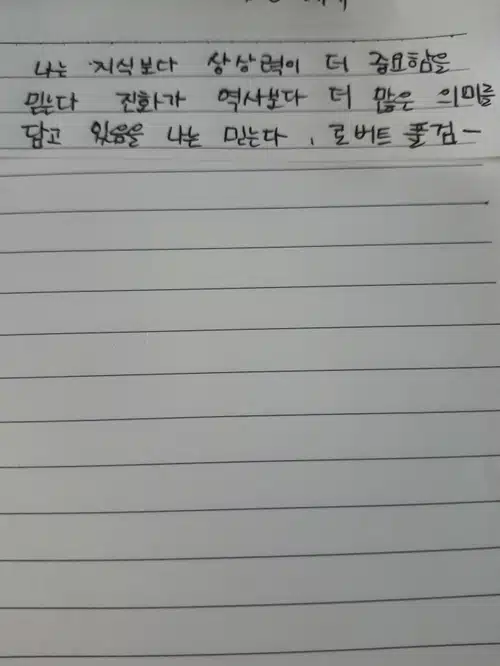 나는 지식보다 상상력이 더 중요함을
믿는다 진화가 역사보다 더 많은 의미를
담고 있음을 나는 믿는다. 로버트 풀검-